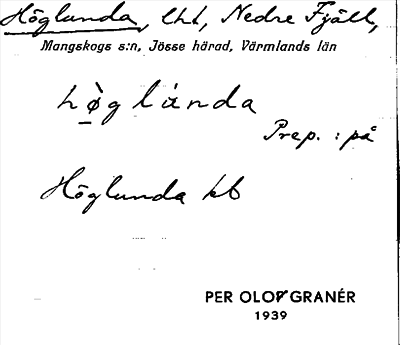 Höglunda, lht, Nedre Fjäll,
Mangskogs s:n, Jösse härad, Värmlands län
hø̀glúnda
Prep. : på
Höglunda kb
PER OLOF GRANÉR
1939